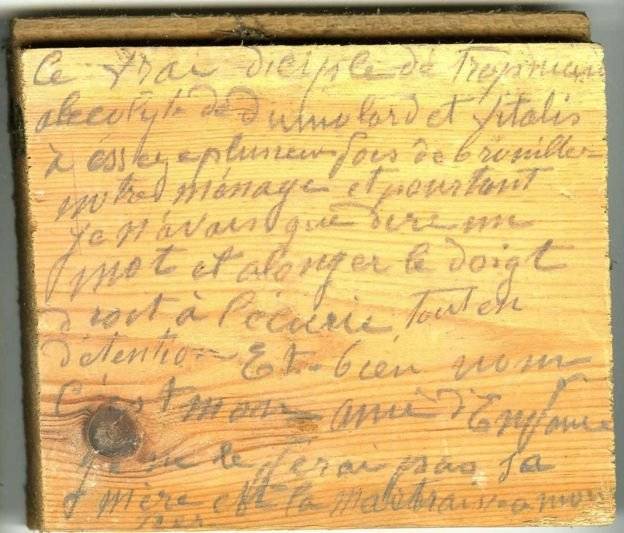 Ce vrai diciple de Tropmann
accolyte de Dumolard et Vitalis
à ésseye plusieur fois de brouiller
notre ménage et pourtant
je n'avais que dire un
mot et alonger le doigt
droit à l'écurie tout en
détention Et bien nom
C'est mon ami d'Enfance
je ne le ferai pas sa
mère est la maitraisse a mon
Per